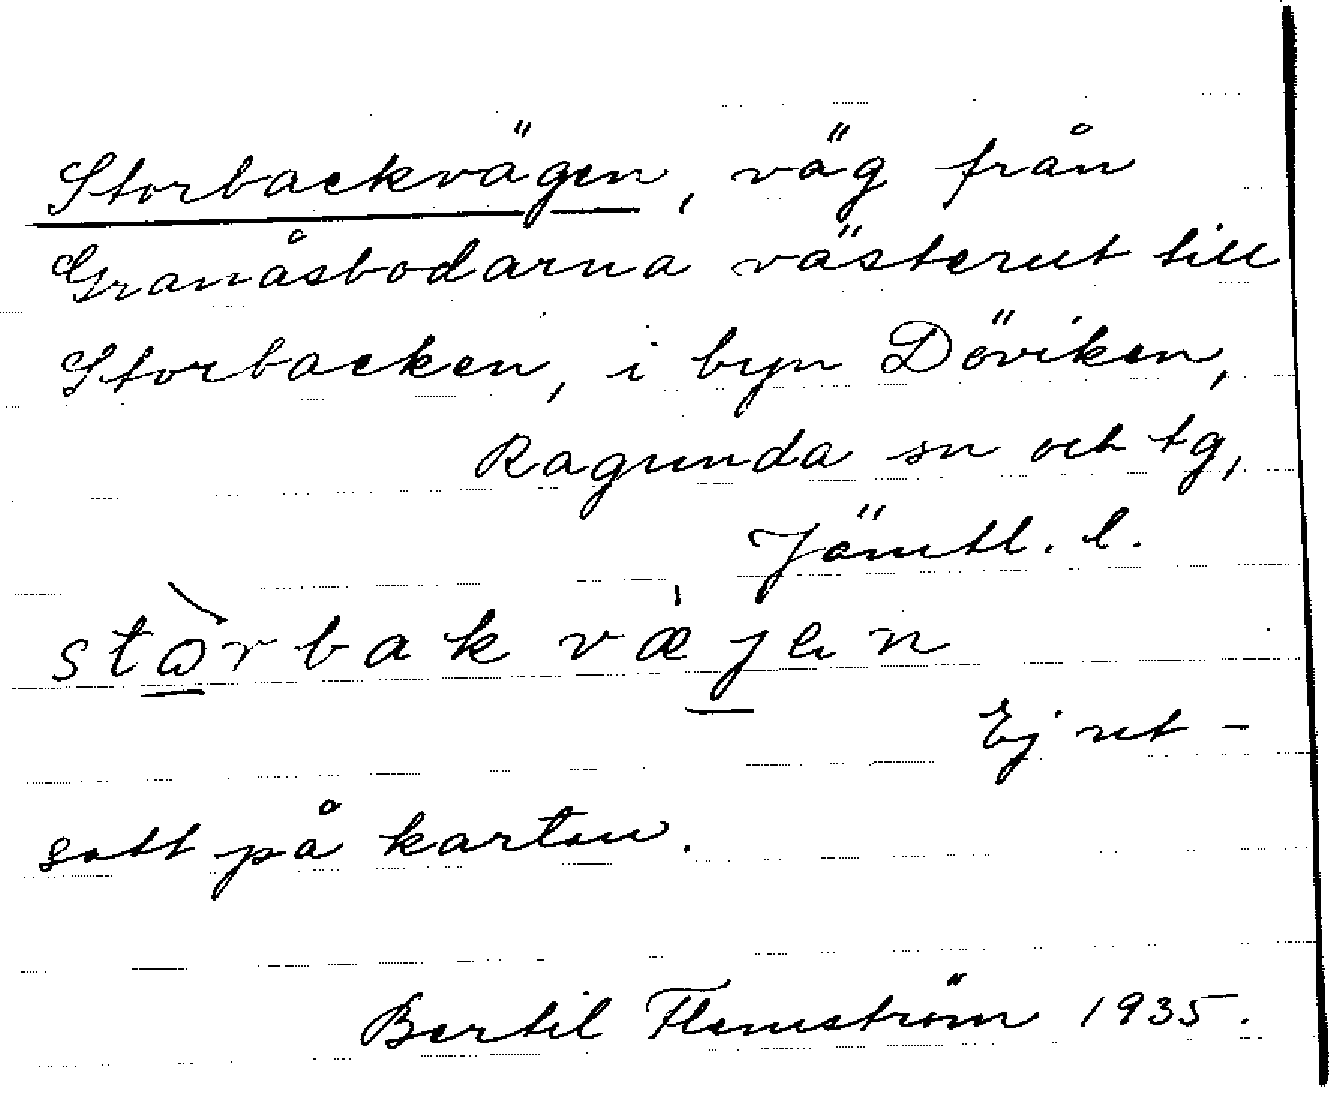 Storbackvägen, väg från
Granåsbodarna västerut till
Storbacken, i byn Döviken,
Ragunda sn och tg,
Jämtl. l.
Ej ut-
satt på kartan.
Bertil Flemström 1935.